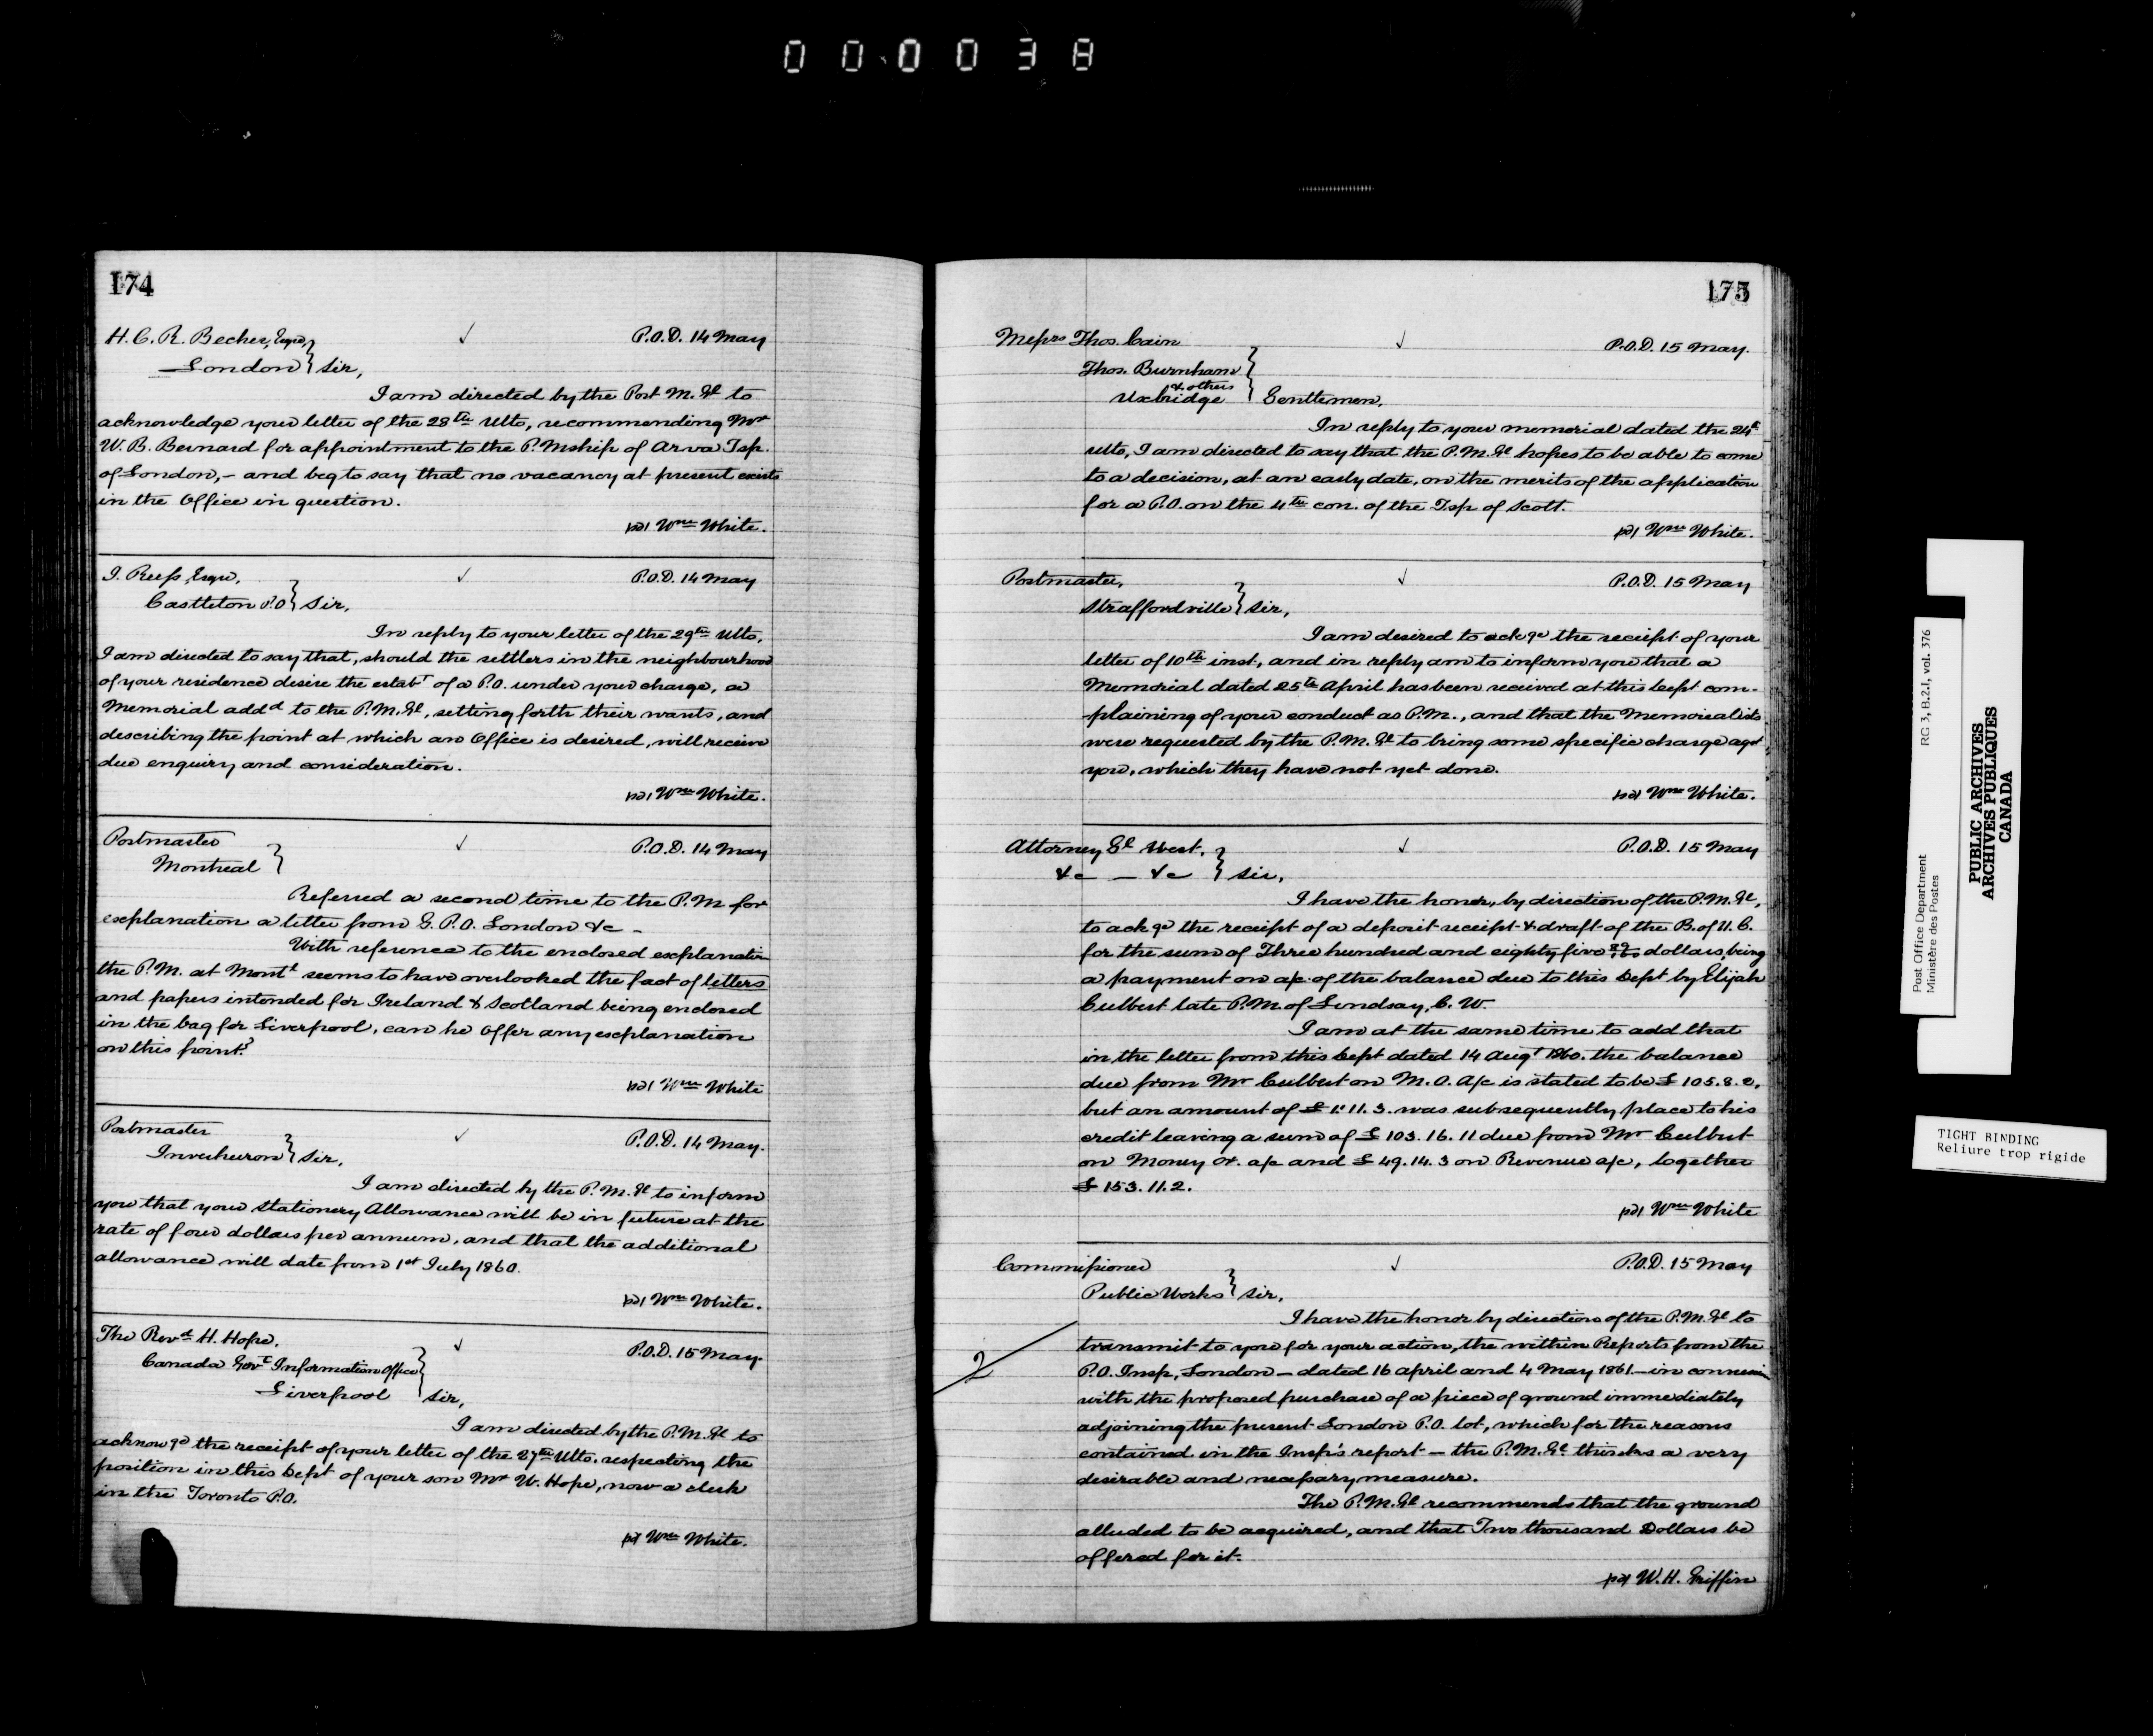 000038
174
H. C. R. Becher, Esqre,
London } Sir,
✓
P.O.D. 14 May
I am directed by the Post M. Gl to
acknowledge your letter of the 28th Ulto, recommending Mr
W. B. Bernard for appointment to the P. Mship of Arva Tsp.
of London, - and beg to say that no vacancy at present exists
in the Office in question.
Wm White.
J. Reess, Esqre,
Castleton P.O } Sir,
✓
P.O.D. 14 May
In reply to your letter of the 29th Ulto,
I am directed to say that, should the settlers in the neighbourhood
of your residence desire the estabt of a P.O. under your charge, a
Memorial addd to the P.M. Gl, setting forth their wants, and
describing the point at which an Office is desired, will receive
due enquiry and consideration.
Wm White.
Postmaster
Montreal }
✓
P.O.D. 14 May
Referred a second time to the P.M for
explanation a letter from G. P.O. London &c -
With reference to the enclosed explanation
the P.M. at Montl seems to have overlooked the fact of letters
and papers intended for Ireland & Scotland being enclosed
in the bag for Liverpool, can he offer any explanation
on this point?
Wm White
Postmaster
Inverhuron } Sir,
✓
P.O.D. 14 May.
I am directed by the P. M. Gl to inform
you that your Stationery Allowance will be in future at the
rate of four dollars per annum, and that the additional
allowance will date from 1st July 1860.
Wm White.
The Revd H. Hope,
Canada Govt Information Office
Liverpool } Sir,
✓
P.O.D. 15 May.
I am directed by the P.M. Gl to
acknowge the receipt of your letter of the 27th Ulto. respecting the
position in this Dept of your son Mr W. Hope, now a clerk
in the Toronto P.O.
Wm White.
175
Messrs Thos. Cain
Thos. Burnham
& others
Uxbridge } Gentlemen,
✓
P.O.D. 15 May.
In reply to your memorial dated the 24th
ulto, I am directed to say that the P.M. Gl hopes to be able to come
to a decision, at an early date, on the merits of the application
for a P.O. on the 4th con. of the Tsp of Scott.
Wm White.
Postmaster,
Straffordville } Sir,
✓
P.O.D. 15 May
I am desired to ackge the receipt of your
letter of 10th inst, and in reply am to inform you that a
Memorial dated 25th April has been received at this Dept com-
plaining of your conduct as P.M., and that the Memorialists
were requested by the P.M. Gl to bring some specific charge agst
you, which they have not yet done.
Wm White.
Attorney Gl West,
&c - &c } Sir,
✓
P.O.D. 15 May
I have the honor, by direction of the P.M. Gl,
to ackge the receipt of a deposit receipt & draft of the B. of U. C.
for the sum of Three hundred and eighty five dollars, being
a payment on a/c of the balance due to this Dept by Elijah
Culbert late P.M. of Lindsay, C. W.
I am at the same time to add that
in the letter from this Dept dated 14 Augt 1860. the balance
due from Mr Culbert on M.O. A/c is stated to be £ 105.8.2,
but an amount of £ 1.11.3. was subsequently place to his
credit leaving a sum of £ 103.16.11 due from Mr Culbert
on Money Or. a/c and £ 49.14.3 on Revenue a/c, together
£ 153.11.2.
Wm White
Commissioner
Public Works } Sir,
✓
P.O.D. 15 May
I have the honor by direction of the P.M. Gl to
2
transmit to you for your action, the within Reports from the
P.O. Insp, London - dated 16 April and 4 May 1861 - in connexion
with the proposed purchase of a piece of ground immediately
adjoining the present London P.O. lot, which for the reasons
contained in the Insp's report - the P.M. Gl thinks a very
desirable and necessary measure.
The P.M. Gl recommends that the ground
alluded to be acquired, and that Two thousand Dollars be
offered for it.
W. H. Griffin
Post Office Department
Ministère des Postes
RG 3, B.2.I, vol. 376
PUBLIC ARCHIVES
ARCHIVES PUBLIQUES
CANADA
TIGHT BINDING
Reliure trop rigide